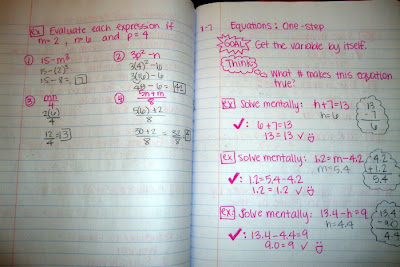 Ex Evaluate each expression if
m=2, n=6 and p=4
① 15-m³
15-(2)³
15-8= 7
② 3p²-n
3(4)²-6
3(16)-6
48-6= 42
③ mn
2(6)
4
12
4
=3
④ 5n+m
8
5(6)+2
8
30+2
8
= 32
8
1-7 Equations: One-step
GOAL: Get the variable by itself.
Think:
What # makes this equation
true?
ex: Solve mentally: h+7=13
h=6
13
-7
6
✓: 6+7=13
13=13 ✓
ex: Solve mentally: 1.2=m-4.2
m=5.4
4.2
+1.2
5.4
✓: 1.2=5.4-4.2
1.2=1.2 ✓
ex: Solve mentally: 13.4-h=9
h=4.4
13.4
-9.0
4.4
✓: 13.4-4.4=9
9.0=9 ✓